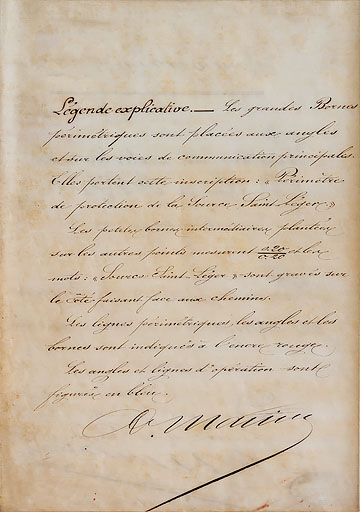 Légende explicative. — Les grandes Bornes
périmétriques sont placées aux angles
et sur les voies de communication principales.
Elles portent cette inscription : « Périmètre
de protection de la Source Saint-Léger »
Les petites bornes intermédiaires plantées
sur les autres points mesurent 0.20/0.20 et les
mots : « Source Saint-Léger » sont gravés sur
le côté faisant face aux chemins.
Les lignes périmétriques, les angles et les
bornes sont indiqués à l'encre rouge.
Les angles et lignes d'opération sont
figurés en bleu.